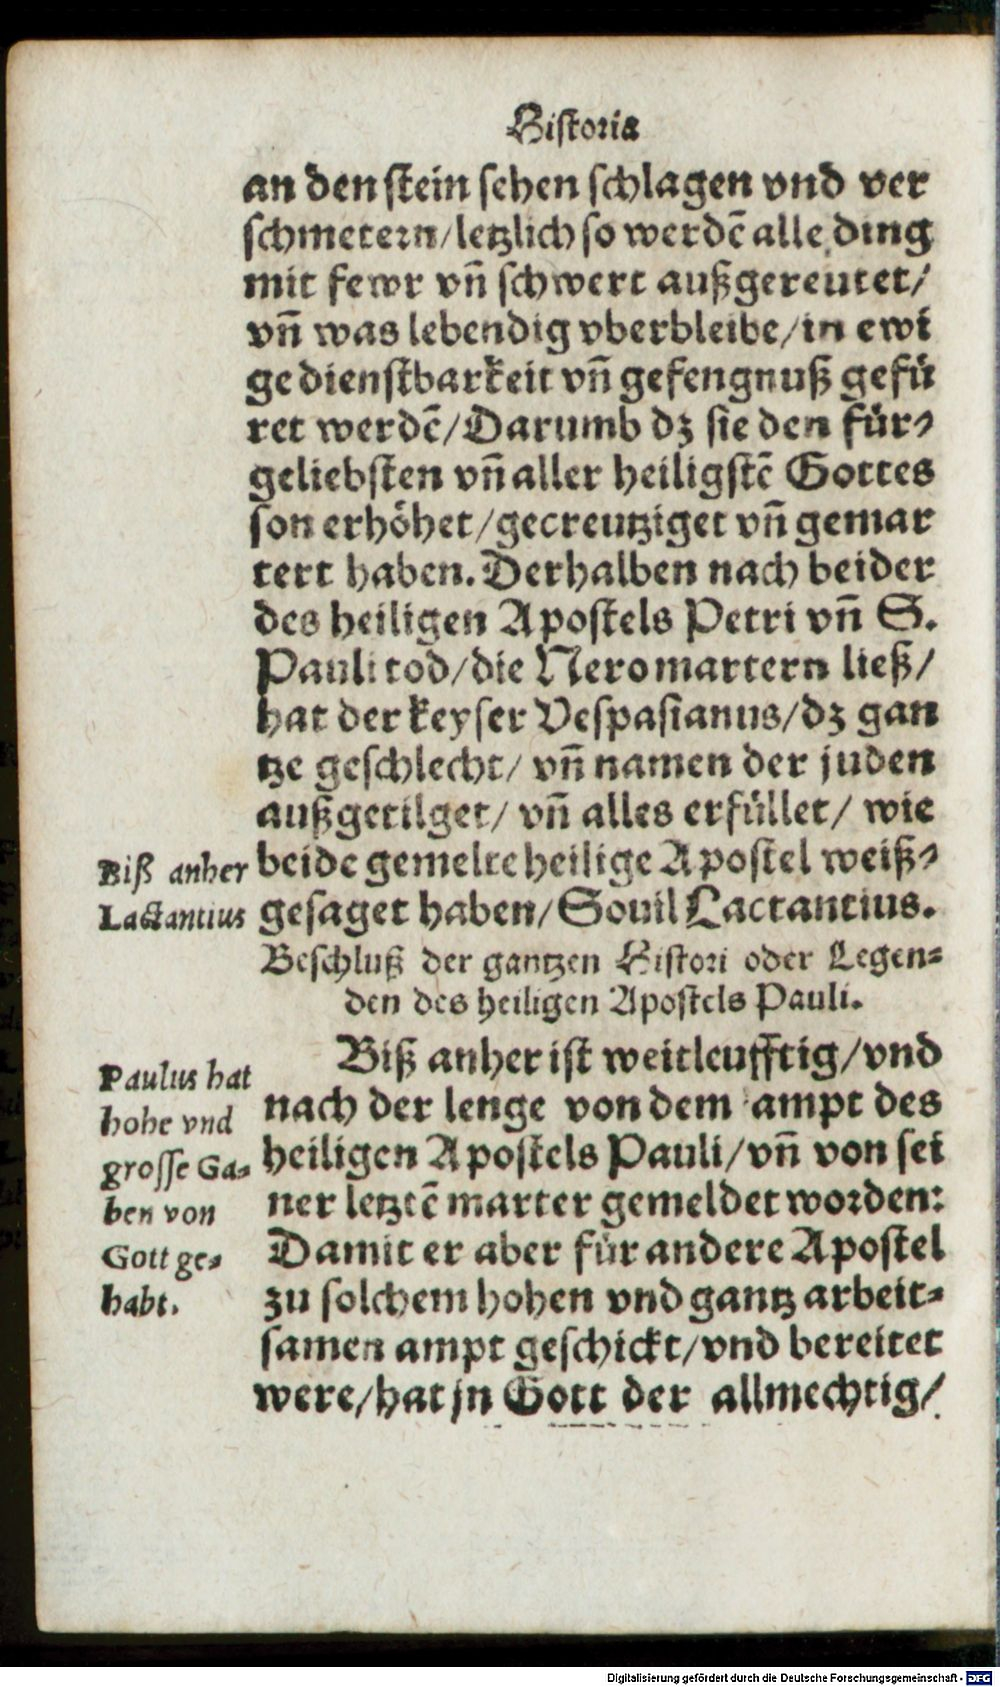 Historia
an den stein sehen schlagen vnd ver
schmetern/letzlich so werdē alle ding
mit fewr vñ schwert außgereutet/
vñ was lebendig vberbleibe/in ewi
ge dienstbarkeit vñ gefengnuß gefü
ret werdē/Darumb dz sie den für⸗
geliebsten vñ aller heiligstē Gottes
son erhöhet/gecreutziget vñ gemar
tert haben. Derhalben nach beider
des heiligen Apostels Petri vñ S.
Pauli tod/die Nero martern ließ/
hat der keyser Vespasianus/dz gan
tze geschlecht/ vñ namen der juden
außgetilget/ vñ alles erfüllet/ wie
beide gemelte heilige Apostel weiß⸗
gesaget haben/Souil Lactantius.
Biß anher
Lactantius
Beschluß der gantzen Histori oder Legen⸗
den des heiligen Apostels Pauli.
Biß anher ist weitleufftig/vnd
nach der lenge von dem ampt des
heiligen Apostels Pauli/vñ von sei
ner letztē marter gemeldet worden:
Damit er aber für andere Apostel
zu solchem hohen vnd gantz arbeit⸗
samen ampt geschickt/vnd bereitet
were/hat jn Gott der allmechtig/
Paulus hat
hohe vnd
grosse Ga⸗
ben von
Gott ge⸗
habt.
Digitalisierung gefördert durch die Deutsche Forschungsgemeinschaft - DFG